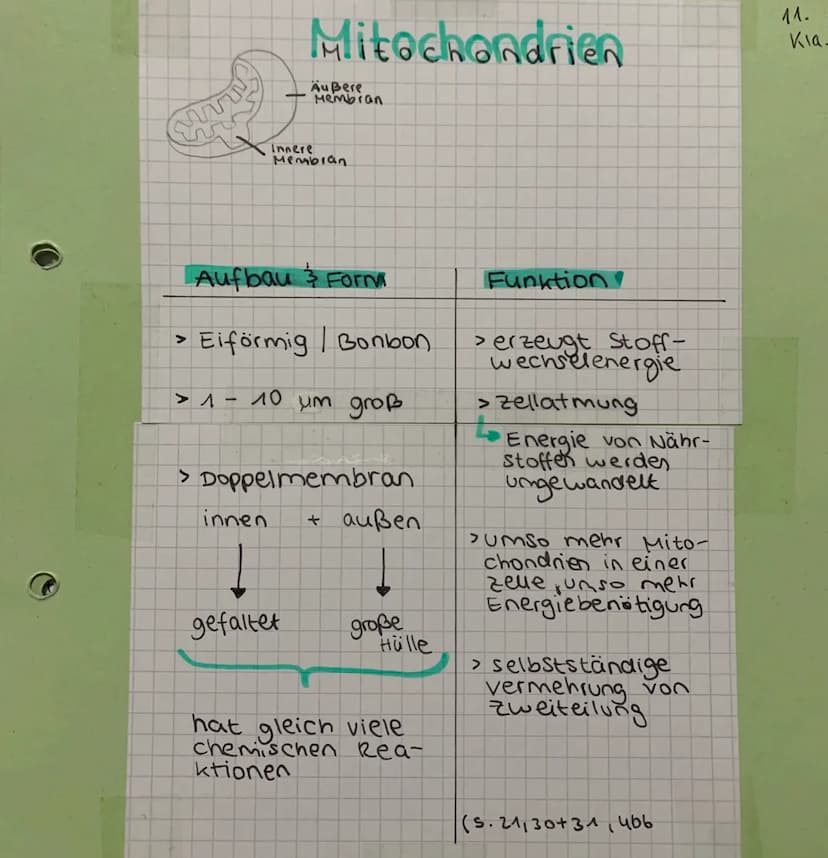 Mitochondrien
11.
Kla.
Äußere
Membran
innere
Membran
Aufbau & Form
> Eiförmig / Bonbon
> 1 - 10 µm groß
> Doppelmembran
innen + außen
gefaltet große
Hülle
hat gleich viele
chemischen Rea-
ktionen
Funktion
> erzeugt Stoff-
wechselenergie
> Zellatmung
Energie von Nähr-
stoffen werden
umgewandelt
> umso mehr Mito-
chondrien in einer
Zelle, umso mehr
Energiebenötigung
> selbstständige
vermehrung von
Zweiteilung
(S. 21, 30+31, 466